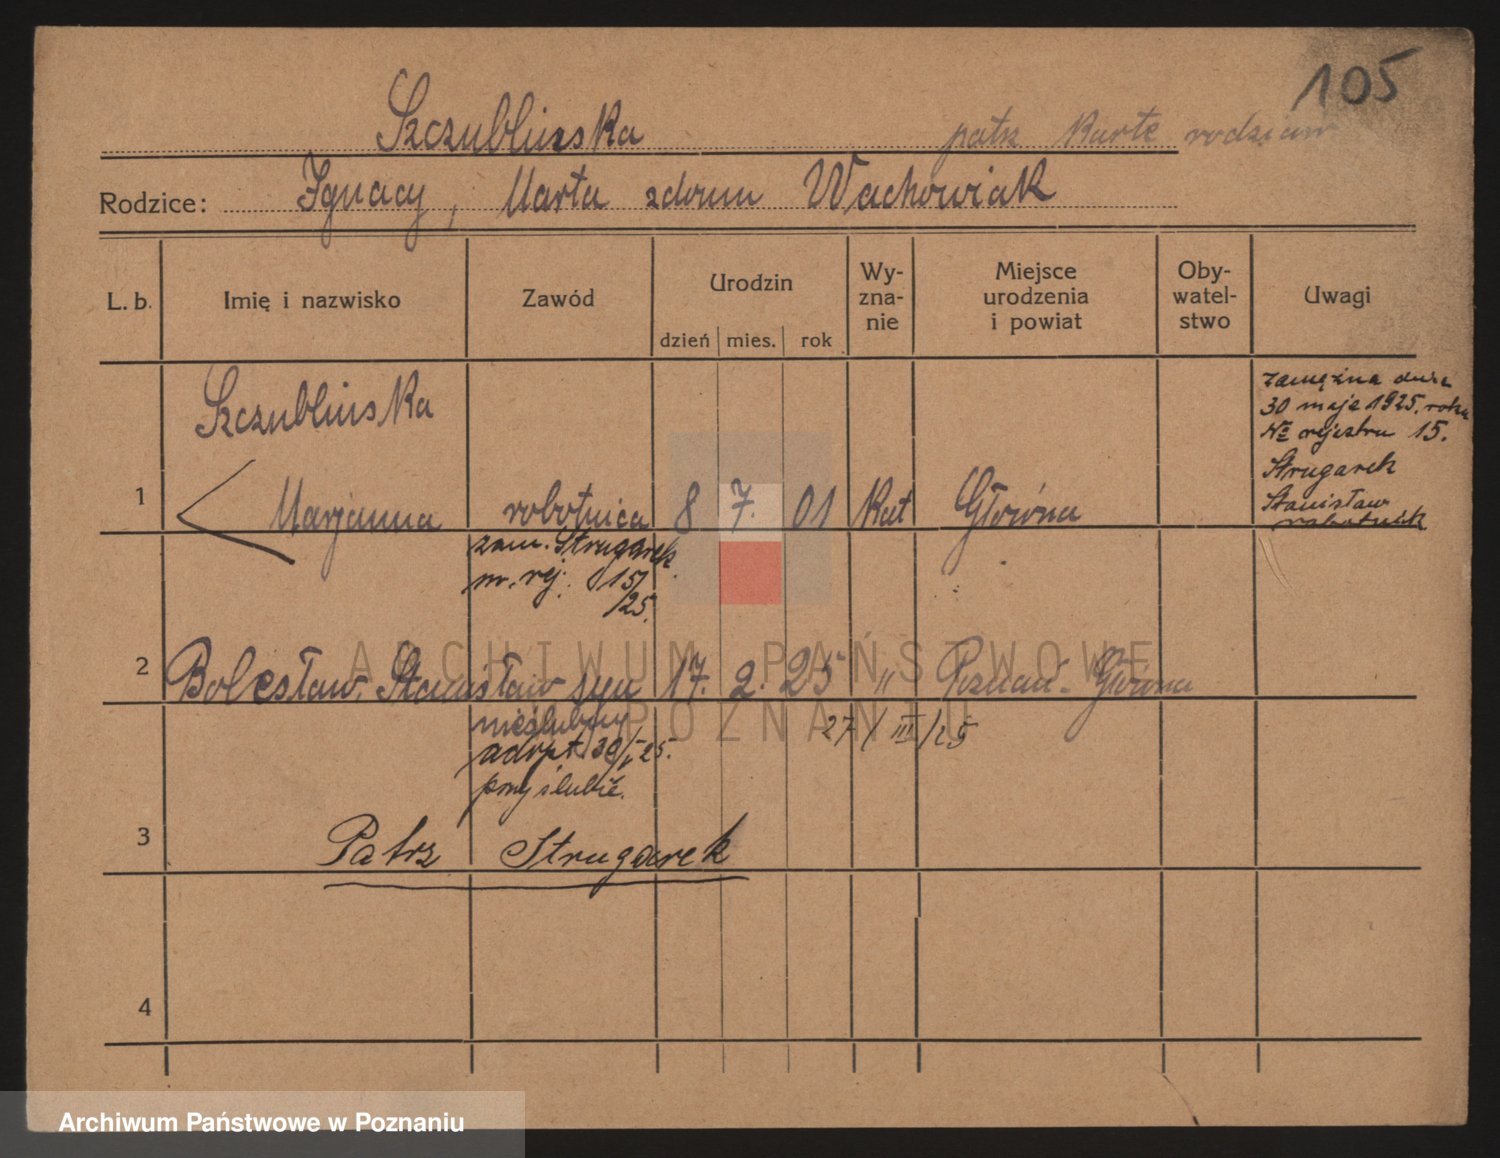 105
Szczublińska patrz Karte rodziców
Rodzice: Ignacy, Marta zdomu Wachowiak
L. b. Imię i nazwisko Zawód Urodzin Wy-zna-nie Miejsce urodzenia i powiat Oby-watel-stwo Uwagi
dzień mies. rok
Szczublińska
zamężna dnia
30 maja 1925. roku
№ rejestru 15.
Strugarek
Stanisław
robotnik
1 Marjanna robotnica 8 7. 01 Kat Główna
zam. Strugarek
nr. rej. 15/
/25.
2 Bolesław, Stanisław syn 17. 2. 25 " Poznań-Główna
nieślubny 27/III/25
adopt. 30/5 25.
przy ślubie.
3 Patrz Strugarek
4
ARCHIWUM PAŃSTWOWE
POZNANIU
Archiwum Państwowe w Poznaniu